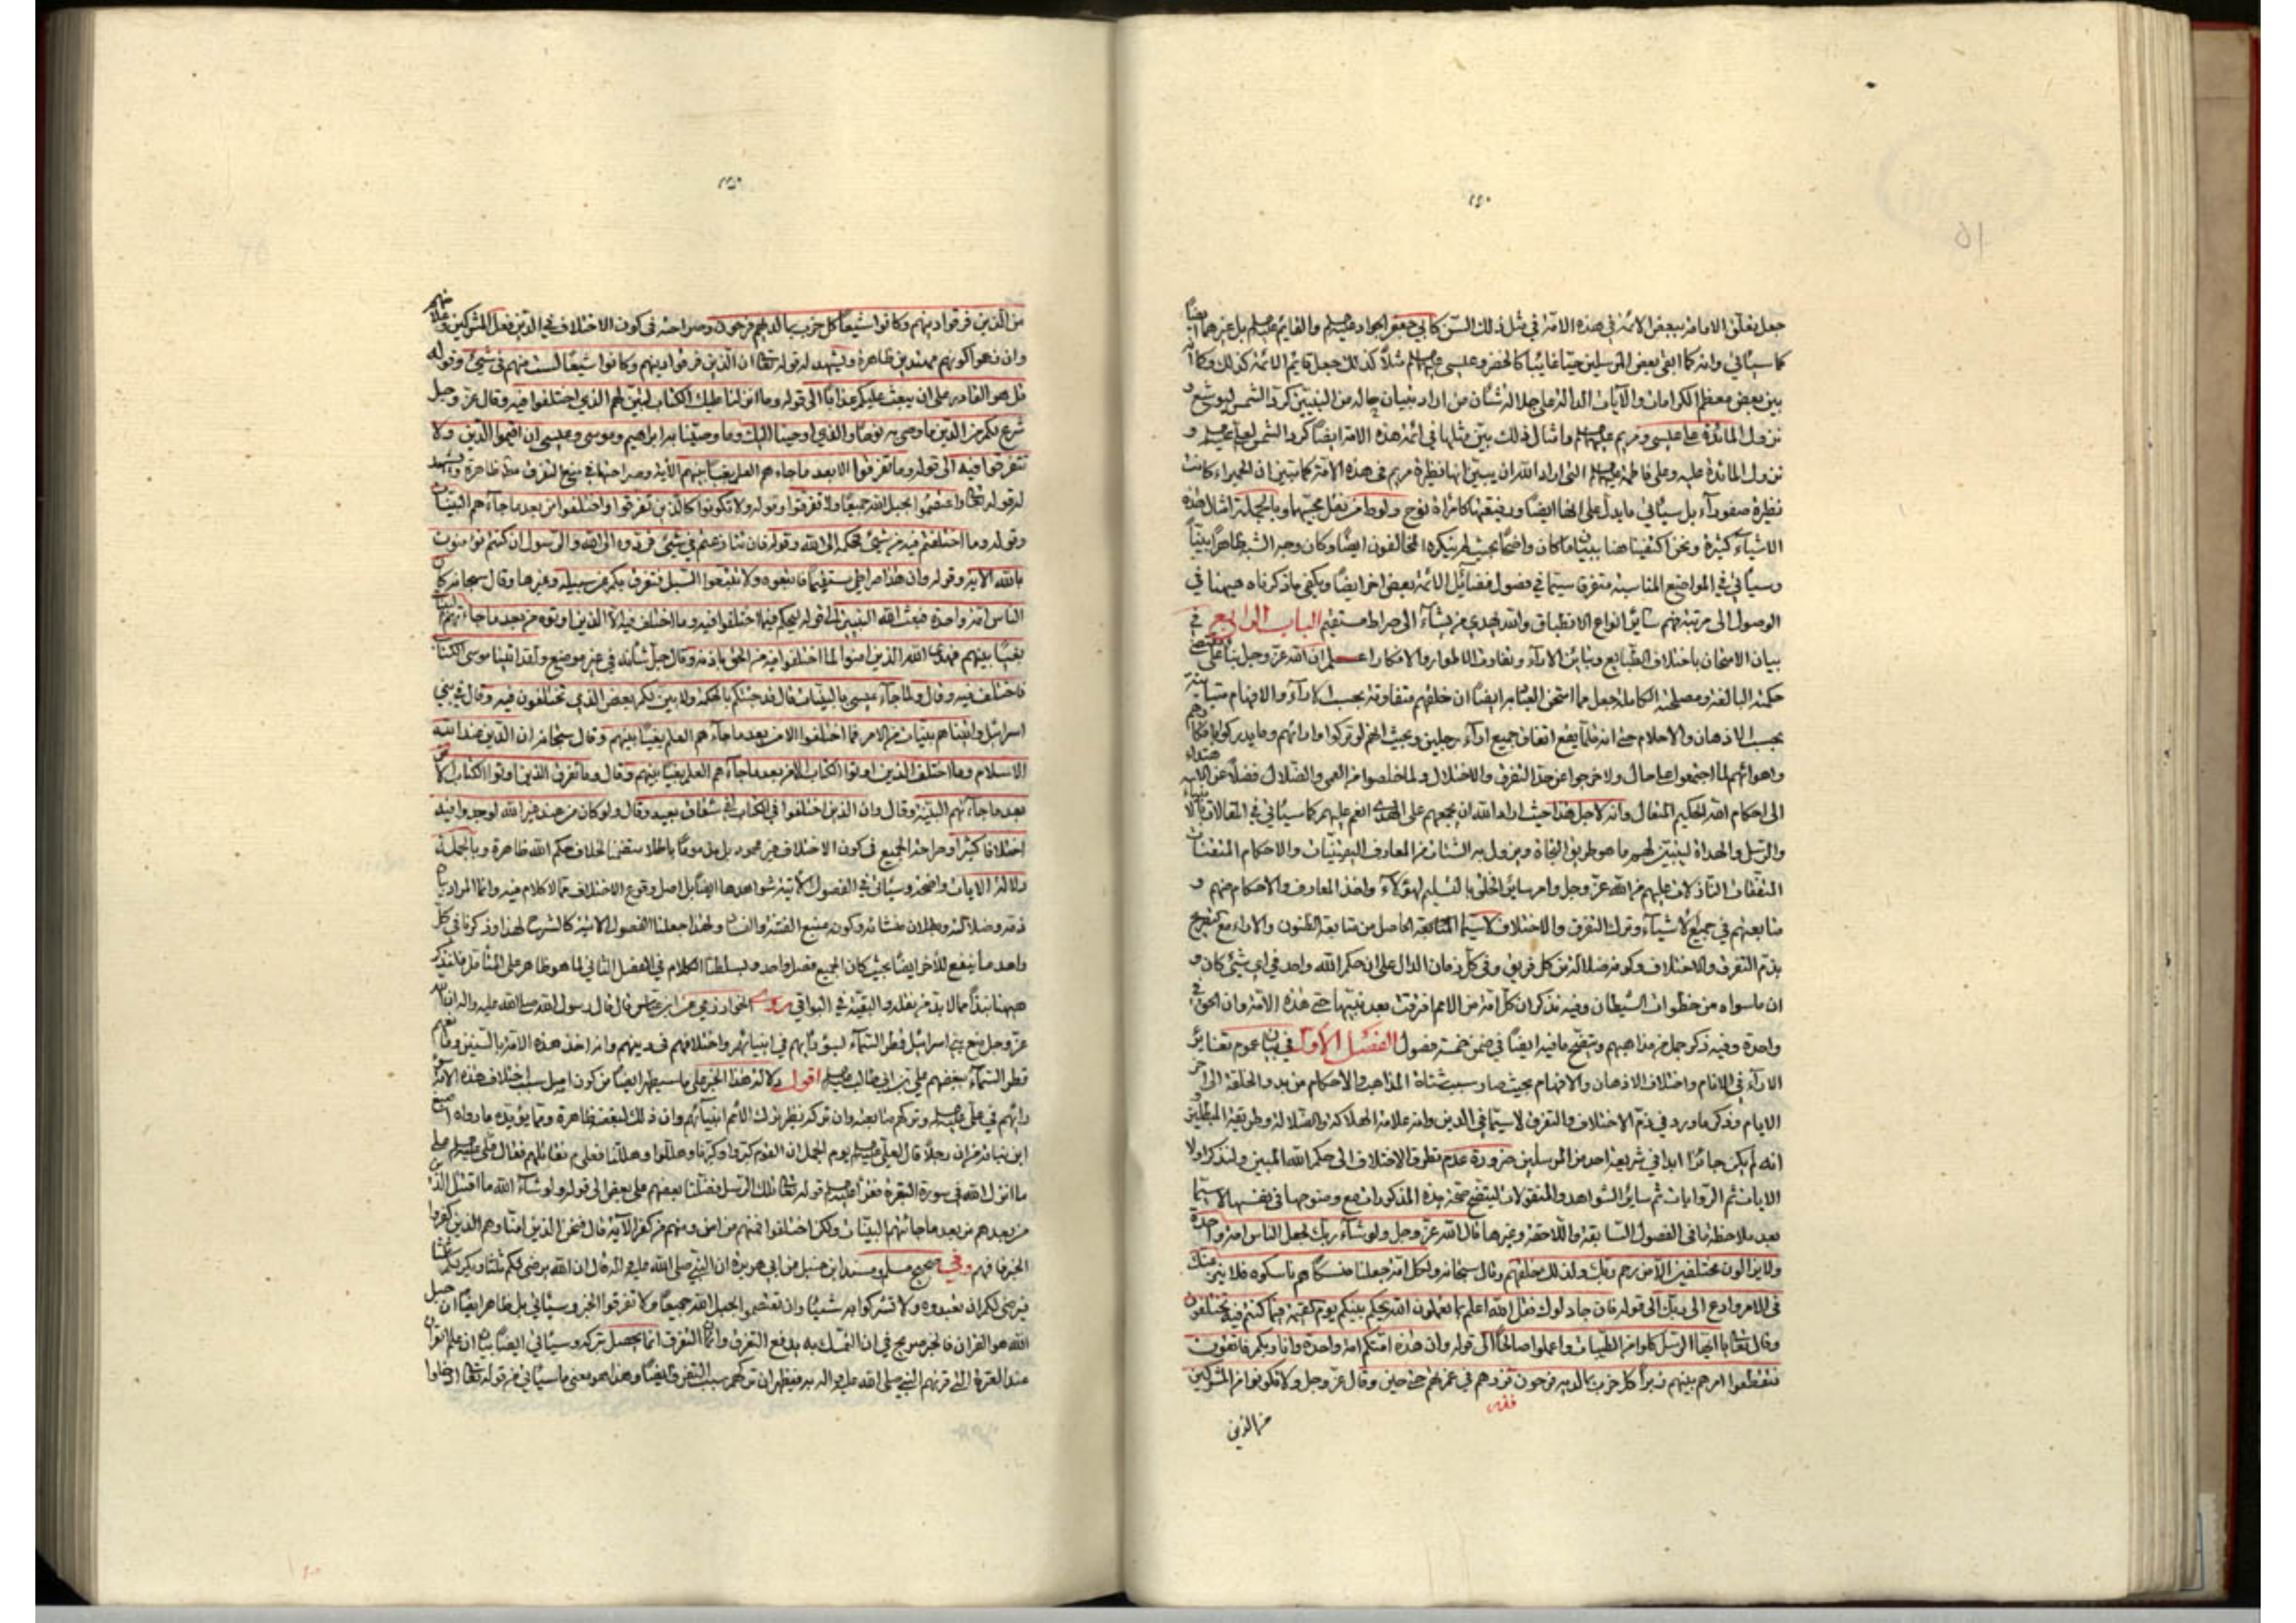 جعل تعلق الامامة ببعض الائمة في هذه الامة في مثل ذلك السن كابي جعفر الجواد عليه السلم والقايم عليه السلم بل غيرهما ايضا
كما سياتي وانه كما ابقى بعض المرسلين حيا غايبا كالخضر وعيسى عليهم السلم مثلا كذلك جعل قايم الائمة كذلك وكما انه
بين بعض معظم الكرامات والآيات الدالة على جلالة شأن من اراد بتبيان حاله من النبيين كرد الشمس ليوشع و
نزول المائدة على عيسى ومريم عليهم السلم وامثال ذلك بين مثلها في ائمة هذه الامة ايضا كرد الشمس لعلي عليه السلم و
نزول المائدة عليه وعلى فاطمة عليهم السلم التي اراد الله ان يبين انها نظيرة مريم في هذه الامة كما تبين ان الحميراء كانت
نظيرة صفورآء بل سيأتي ما يدل على انها ايضا ورفيقتها كامراة نوح ولوط من نقل محبيهما وبالجملة امثال هذه
الاشياء كثيرة ونحن اكتفينا هنا ببيان ما كان واضحا بحيث لم ينكره المخالفون ايضا وكان وجه الشبه ظاهرا بينا
وسيأتي في المواضع المناسبة متفرقا سيما في فصول فضائل الائمة بعض اخر ايضا ويكفي ما ذكرناه هيهنا في
الوصول الى مرتبة فهم سائر انواع الانطباق والله يهدي من يشآء الى صراط مستقيم الباب الرابع في
بيان الامتحان باختلاف الطبايع وتباين الارآء وتفاوت الاطوار والافكار اعلم ان الله عز وجل بناء على مقتضى
حكمته البالغة ومصلحته الكاملة جعل مما امتحن العباد به ايضا ان خلقهم متفاوتة بحسب الارآء والافهام متباينة
بحسب الاذهان والاحلام حتى انه قلما يقع اتفاق جميع ارآء رجلين وبحيث انهم لو تركوا وارادتهم وما يدركون بافكارهم
واهوائهم لما اجتمعوا على حال ولا خرجوا عن حد التفرق والاختلال ولما خلصوا من العمى والضلال فضلا عن الاهتداء
الى احكام الله الحكيم المتعال وانه لاجل هذا حيث اراد الله ان يجمعهم على الهدى انعم عليهم كما سيأتي في المقالات بالانبياء
والرسل والهداة ليتبين لهم ما هو طريق النجاة ويزول به الشتات من المعارف اليقينيات والاحكام المتقنات
المتفقات النازلات عليهم من الله عز وجل وامر ساير الخلق بالتسليم لهؤلآء واخذ المعارف والاحكام منهم و
متابعتهم في جميع الاشيآء وترك التفرق والاختلاف لا سيما الحاصل من متابعة الظنون والاراء مع التصريح
بذم التفرق والاختلاف وكونه ضلالة من كل فريق وفي كل زمان الدال على ان حكم الله واحد في اي شئ كان و
ان ما سواه من خطوات الشيطان وفيه تذكر ان كل امة من الامم افرقت بعد نبيها حتى هذه الامة وان الحق في
واحدة وفيه ذكر جمل من مذاهبهم وتوضيح ما فيه ايضا في ضمن خمسة فصول الفصل الاول في بيان عموم تغاير
الارآء في الانام واختلاف الاذهان والافهام بحيث صار سبب شتات المذاهب والاحكام من بدو الخلقة الى آخر
الايام وذكر ما ورد في ذم الاختلاف والتفرق لا سيما في الدين وانه علامة الهلاكة والضلالة وطريقة المبطلين و
انه لم يكن جائزا ابدا في شريعة احد من المرسلين ضرورة عدم تطرق الاختلاف الى حكم الله المبين ولنذكر اولا
الايات ثم الروايات ثم سائر الشواهد والمنقولات ليتضح صحة هذه المذكورات مع وضوحها في نفسها لا سيما
بعد ملاحظة ما في الفصول السابقة واللاحقة وغيرها قال الله عز وجل ولو شآء ربك لجعل الناس امة واحدة
ولا يزالون مختلفين الا من رحم ربك ولذلك خلقهم وقال سبحانه ولكل امة جعلنا منسكا هم ناسكوه فلا ينازعنك
في الامر وادع الى ربك الى قوله فان جادلوك فقل الله اعلم بما تعملون الله يحكم بينكم يوم القيمة فيما كنتم فيه تختلفون
وقال تعالى يا ايها الرسل كلوا من الطيبات واعملوا صالحا الى قوله وان هذه امتكم امة واحدة وانا ربكم فاتقون
فتقطعوا امرهم بينهم زبرا كل حزب بما لديهم فرحون فذرهم في غمرتهم حتى حين وقال عز وجل ولا تكونوا من المشركين
من الذين
من الذين فرقوا دينهم وكانوا شيعا كل حزب بما لديهم فرحون وصراحته في كون الاختلاف في الدين فعل المشركين
وان زعموا كونهم مهتدين ظاهرة ويشهد له قوله تعالى ان الذين فرقوا دينهم وكانوا شيعا لست منهم في شئ وقوله
قل هو القادر على ان يبعث عليكم عذابا الى قوله وما انزلنا عليك الكتاب الا لتبين لهم الذي اختلفوا فيه وقال عز وجل
شرع لكم من الدين ما وصى به نوحا والذي اوحينا اليك وما وصينا به ابراهيم وموسى وعيسى ان اقيموا الدين ولا
تتفرقوا فيه الى قوله وما تفرقوا الا بعد ما جاءهم العلم بغيا بينهم الآية وصراحتها في منع التفرق مطلقا ظاهرة ويشهد
له قوله تعالى واعتصموا بحبل الله جميعا ولا تفرقوا وقوله ولا تكونوا كالذين تفرقوا واختلفوا من بعد ما جآءهم البينات
وقوله وما اختلفتم فيه من شئ فحكمه الى الله وقوله فان تنازعتم في شئ فردوه الى الله والرسول ان كنتم تؤمنون
بالله الآية وقوله وان هذا صراطي مستقيما فاتبعوه ولا تتبعوا السبل فتفرق بكم عن سبيله وغيرها وقال سبحانه كان
الناس امة واحدة فبعث الله النبيين الى قوله ليحكم فيما اختلفوا فيه وما اختلف فيه الا الذين اوتوه من بعد ما جاءتهم البينات
بغيا بينهم فهدى الله الذين امنوا لما اختلفوا فيه من الحق باذنه وقال جل شأنه في غير موضع ولقد اتينا موسى الكتاب
فاختلف فيه وقال ولما جآء عيسى بالبينات قال قد جئتكم بالحكمة ولابين لكم بعض الذي تختلفون فيه وقال في بني
اسرائيل واتيناهم بينات من الامر فما اختلفوا الا من بعد ما جآءهم العلم بغيا بينهم وقال سبحانه ان الدين عند الله
الاسلام وما اختلف الذين اوتوا الكتاب الا من بعد ما جآءهم العلم بغيا بينهم وقال وما تفرق الذين اوتوا الكتاب الا من
بعد ما جآءتهم البينة وقال وان الذين اختلفوا في الكتاب لفي شقاق بعيد وقال ولو كان من عند غير الله لوجدوا فيه
اختلافا كثيرا وصراحة الجميع في كون الاختلاف غير محمود بل مذموما باطلا مستلزما لخلاف حكم الله ظاهرة وبالجملة
دلالة الايات واضحة وسيأتي في الفصول الاتية شواهدها ايضا بل اصل وقوع الاختلاف مما لا كلام فيه وانما المراد بيان
ذمه وضلالته وبطلان منشائه وكونه منبع الفتنة والفساد ولهذا جعلنا الفصول الاتية كالشرح لهذا وذكرنا في كل
واحد ما ينفع للأخر ايضا بحيث كان الجميع فصل واحد وبسطنا الكلام في الفصل الثاني لما هو ظاهر على المتأمل فلنذكر
هيهنا نبذا مما لا بد من نقله والبقية في البواقي روى الخوارزمي عن ابن عباس قال قال رسول الله صلى الله عليه واله ان الله
عز وجل منع بني اسرائيل قطر السمآء لسوء رأيهم في انبيائهم واختلافهم في دينهم وانه اخذ هذه الامة بالسنين ومنعهم
قطر السمآء ببغضهم علي بن ابي طالب عليه السلم اقول دلالة هذا الخبر على ما سيظهر ايضا من كون اصل سبب اختلاف هذه الامة سوء
رايهم في علي عليه السلم وتركهم متابعته وان تركه نظير ترك الامم انبيآئهم وان ذلك لبغضه ظاهرة ومما يؤيده ما رواه اصبغ
ابن نباتة من ان رجلا قال لعلي عليه السلم يوم الجمل ان القوم كبروا وكبرنا وهللوا وهللنا فعلى م نقاتلهم فقال علي عليه السلم على
ما انزل الله في سورة البقرة فقرأ عليه السلم قوله تعالى تلك الرسل فضلنا بعضهم على بعض الى قوله ولو شآء الله ما اقتتل الذين
من بعدهم من بعد ما جائتهم البينات ولكن اختلفوا فمنهم من امن ومنهم من كفر الآية قال فنحن الذين امنا وهم الذين كفروا
الخبر فافهم وفي صحيح مسلم ومسند ابن حنبل عن ابي هريرة ان النبي صلى الله عليه واله قال ان الله يرضى لكم ثلثا ويكره لكم ثلثا
فيرضى لكم ان تعبدوه ولا تشركوا به شيئا وان تعتصموا بحبل الله جميعا ولا تفرقوا الخبر وسيأتي بل ظاهر ايضا ان حبل
الله هو القران فالخبر صريح في ان التمسك به يدفع التفرق وانما التفرق انما يحصل بتركه وسيأتي ايضا بيان ان علم القرآن
عند العترة التي قرنهم النبي صلى الله عليه واله به فيظهر ان تركهم سبب التفرق ايضا وهذا هو معنى ما سيأتي من قوله تعالى ادخلوا